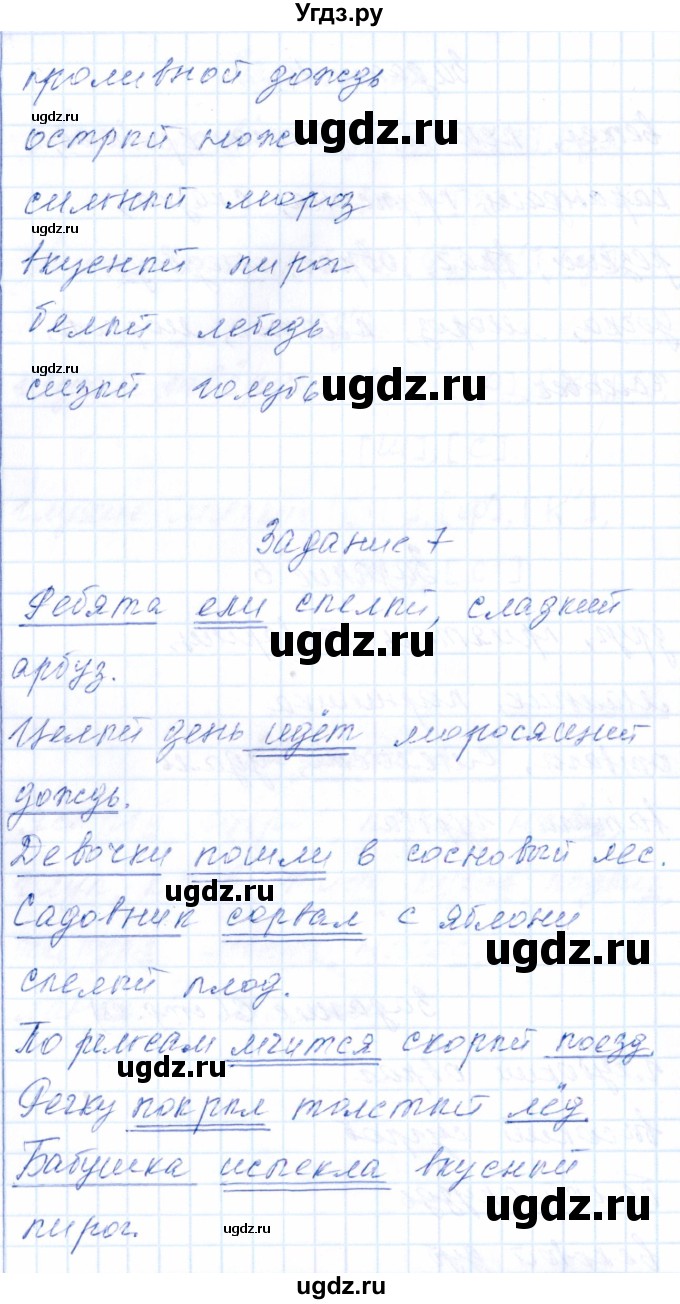 Угдз.ру
проливной дождь
ugdz.ru
острый нож
ugdz.ru
сильный мороз
ugdz.ru
вкусный пирог
белый лебедь
ugdz.ru
сизый голубь
ugdz.ru
Задание 7
Ребята ели спелый, сладкий
ugdz.ru
арбуз.
Целый день идёт моросящий
дождь.
Девочки пошли в сосновый лес.
ugdz.ru
Садовник сорвал с яблони
ugdz.ru
спелый плод.
По рельсам мчится скорый поезд.
ugdz.ru
Речку покрыл толстый лёд.
Бабушка испекла вкусный
ugdz.ru
пирог.
ugdz.ru
ugdz.ru